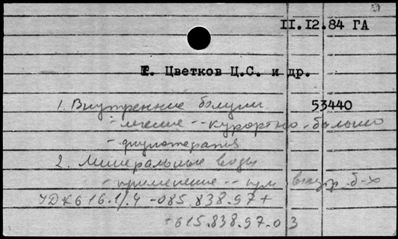 11.12.84 ГА
Е. Цветков Ц.С. и др.
1. Внутренние болузни 53440
- лечение -- курортно-больно
- физиотерапия
2. Минеральные воды
- применение -- при внутр. б-х
УДК 616.1/.4-085.838.97+
+615.838.97.03